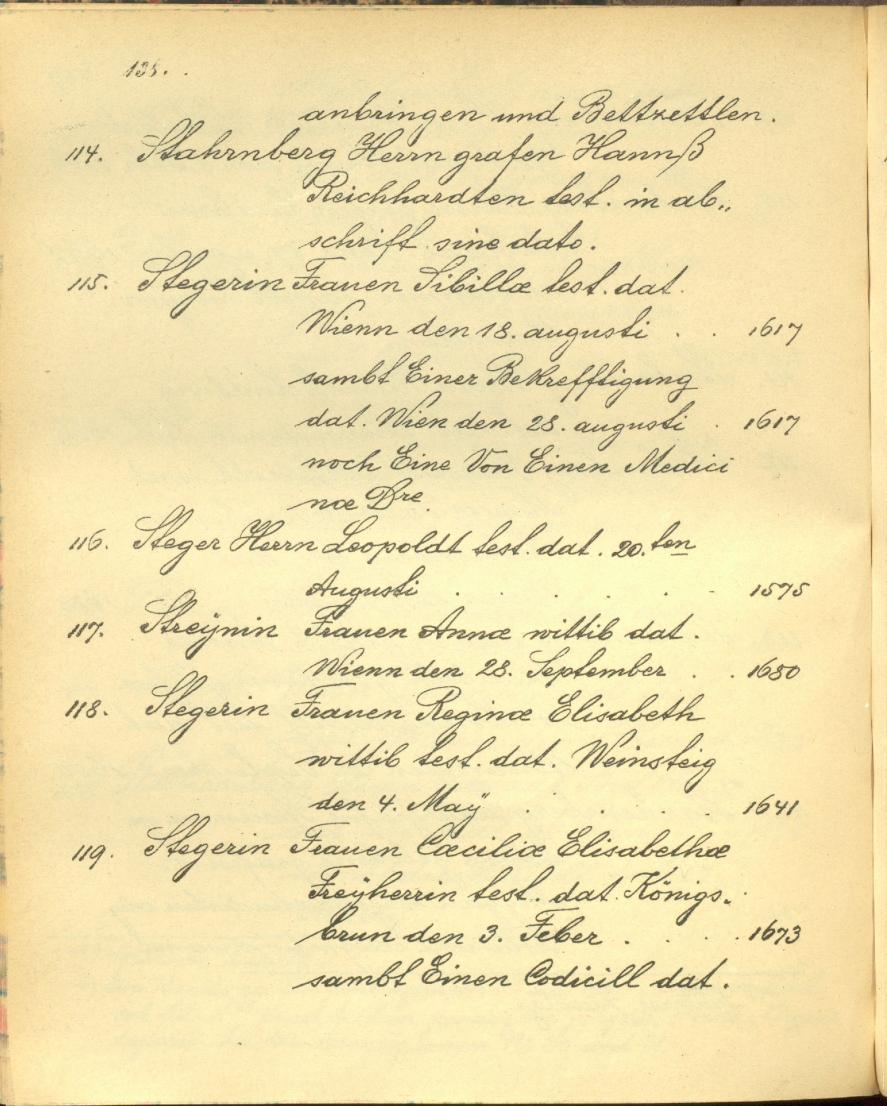 138.
anbringen und Bettzettlen.
114. Stahrnberg Herrn grafen Hannß
Reichhardten test. in ab„
schrift sine dato.
115. Stegerin Frauen Sibillæ test. dat.
Wienn den 18. augusti . . 1617
sambt Einer Bekrefftigung
dat. Wien den 28. augusti . 1617
noch Eine Von Einen Medici
næ Dre.
116. Steger Herrn Leopoldt test. dat. 20.ten
Augusti . . . . . 1575
117. Streÿnin Frauen Annæ wittib dat.
Wienn den 28. September . . 1680
118. Stegerin Frauen Reginæ Elisabeth
wittib test. dat. Weinsteig
den 4. Maÿ . . . . 1641
119. Stegerin Frauen Cæciliæ Elisabethæ
Freÿherrin test. dat. Königs„
brun den 3. Feber . . . . 1673
sambt Einen Codicill dat.